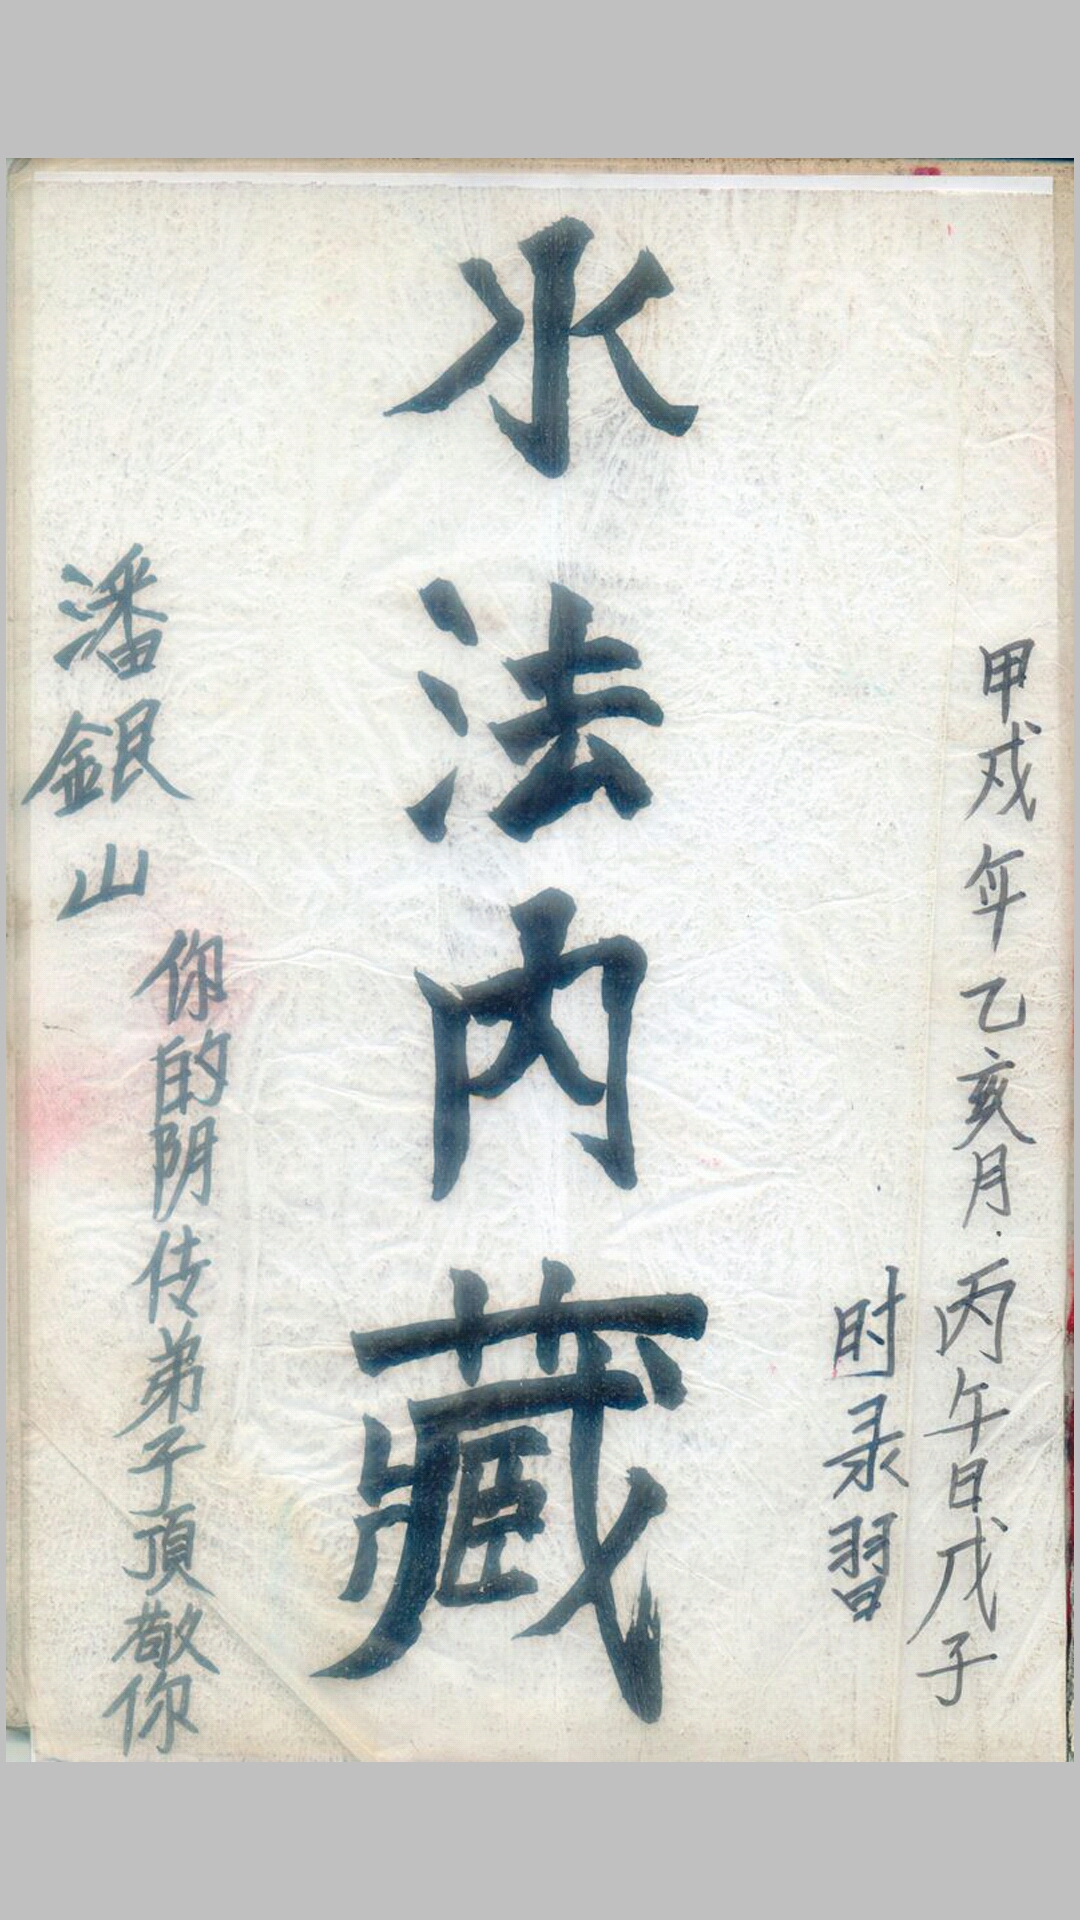 甲戌年乙亥月·丙午日戊子
时录習
水法内藏
你的阴传弟子頂敬你
潘銀山